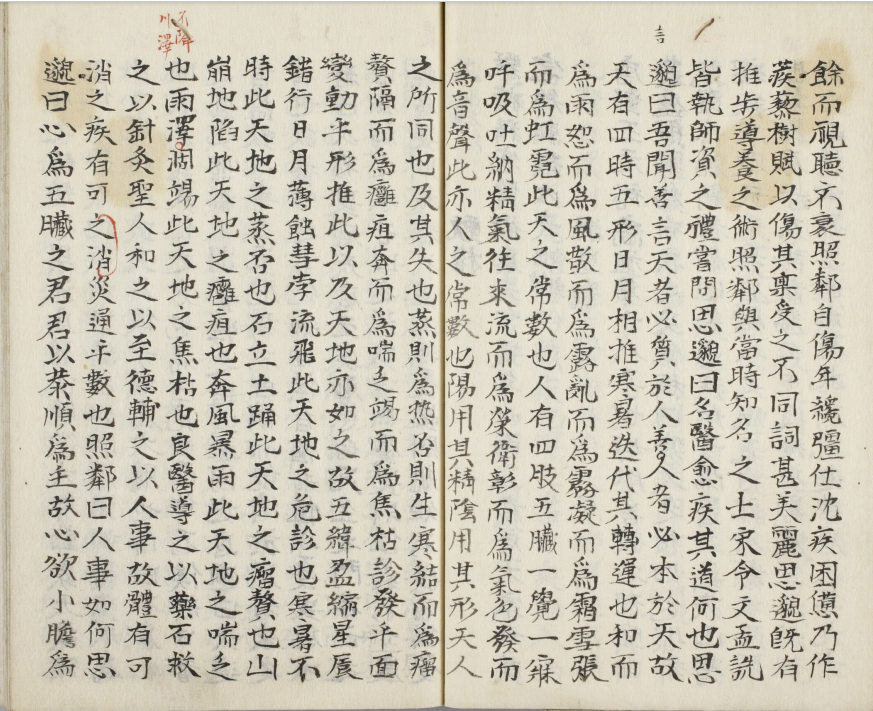 餘而視聴不衰照鄰自傷年纔彊仕沈疾困憊乃作
蒺藜樹賦以傷其稟受之不同詞甚美麗思邈旣有
推步導養之術照鄰與當時知名之士宋令文孟詵
皆執師資之禮嘗問思邈曰名醫愈疾其道何也思
言
邈曰吾聞善言天者必質於人善人者必本於天故
天有四時五形日月相推寒暑迭代其轉運也和而
爲雨恕而爲風散而爲露亂而爲霧凝而爲霜雪張
而爲虹霓此天之常數也人有四肢五臟一覺一寐
呼吸吐納精氣往來流而爲榮衛彰而爲氣色發而
爲音聲此亦人之常數也陽用其精陰用其形天人
之所同也及其失也蒸則爲熱否則生寒結而爲瘤
贅隔而爲癰疽奔而爲喘乏竭而爲焦枯診發乎面
變動乎形推此以及天地亦如之故五緯盈縮星辰
錯行日月薄蝕彗孛流飛此天地之危診也寒暑不
時此天地之蒸否也石立土踊此天地之瘤贅也山
崩地陷此天地之癰疽也奔風暴雨此天地之喘乏
不降
川澤
也雨澤涸竭此天地之焦枯也良醫導之以藥石救
之以針灸聖人和之以至德輔之以人事故體有可
消之疾有可之消災通乎數也照鄰曰人事如何思
邈曰心爲五臟之君君以恭順爲主故心欲小膽爲